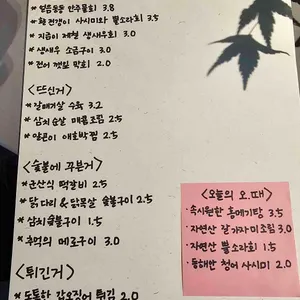 * 얼음동동 안주물회 3.8
* 황전갱이 사시미와 뿔소라회 3.5
* 지금이 제철 생새우회 3.0
* 생새우 소금구이 3.0
* 전어 깻잎 막회 2.0
<뜨신거>
* 갈매기살 수육 3.2
* 삼치순살 매콤조림 2.5
* 양곤이 애호박찜 2.5
<숯불에 꾸븐거>
* 군산식 떡갈비 2.5
* 닭다리 & 닭목살 숯불구이 2.5
* 삼치숯불구이 1.5
* 추억의 메로구이 3.0
<튀긴거>
* 도톰한 갑오징어 튀김 2.0
<오늘의 오.때>
· 속시원한 홍메기탕 3.5
· 자연산 참가자미조림 3.0
· 자연산 뿔소라회 1.5
· 동해안 청어 사시미 2.0